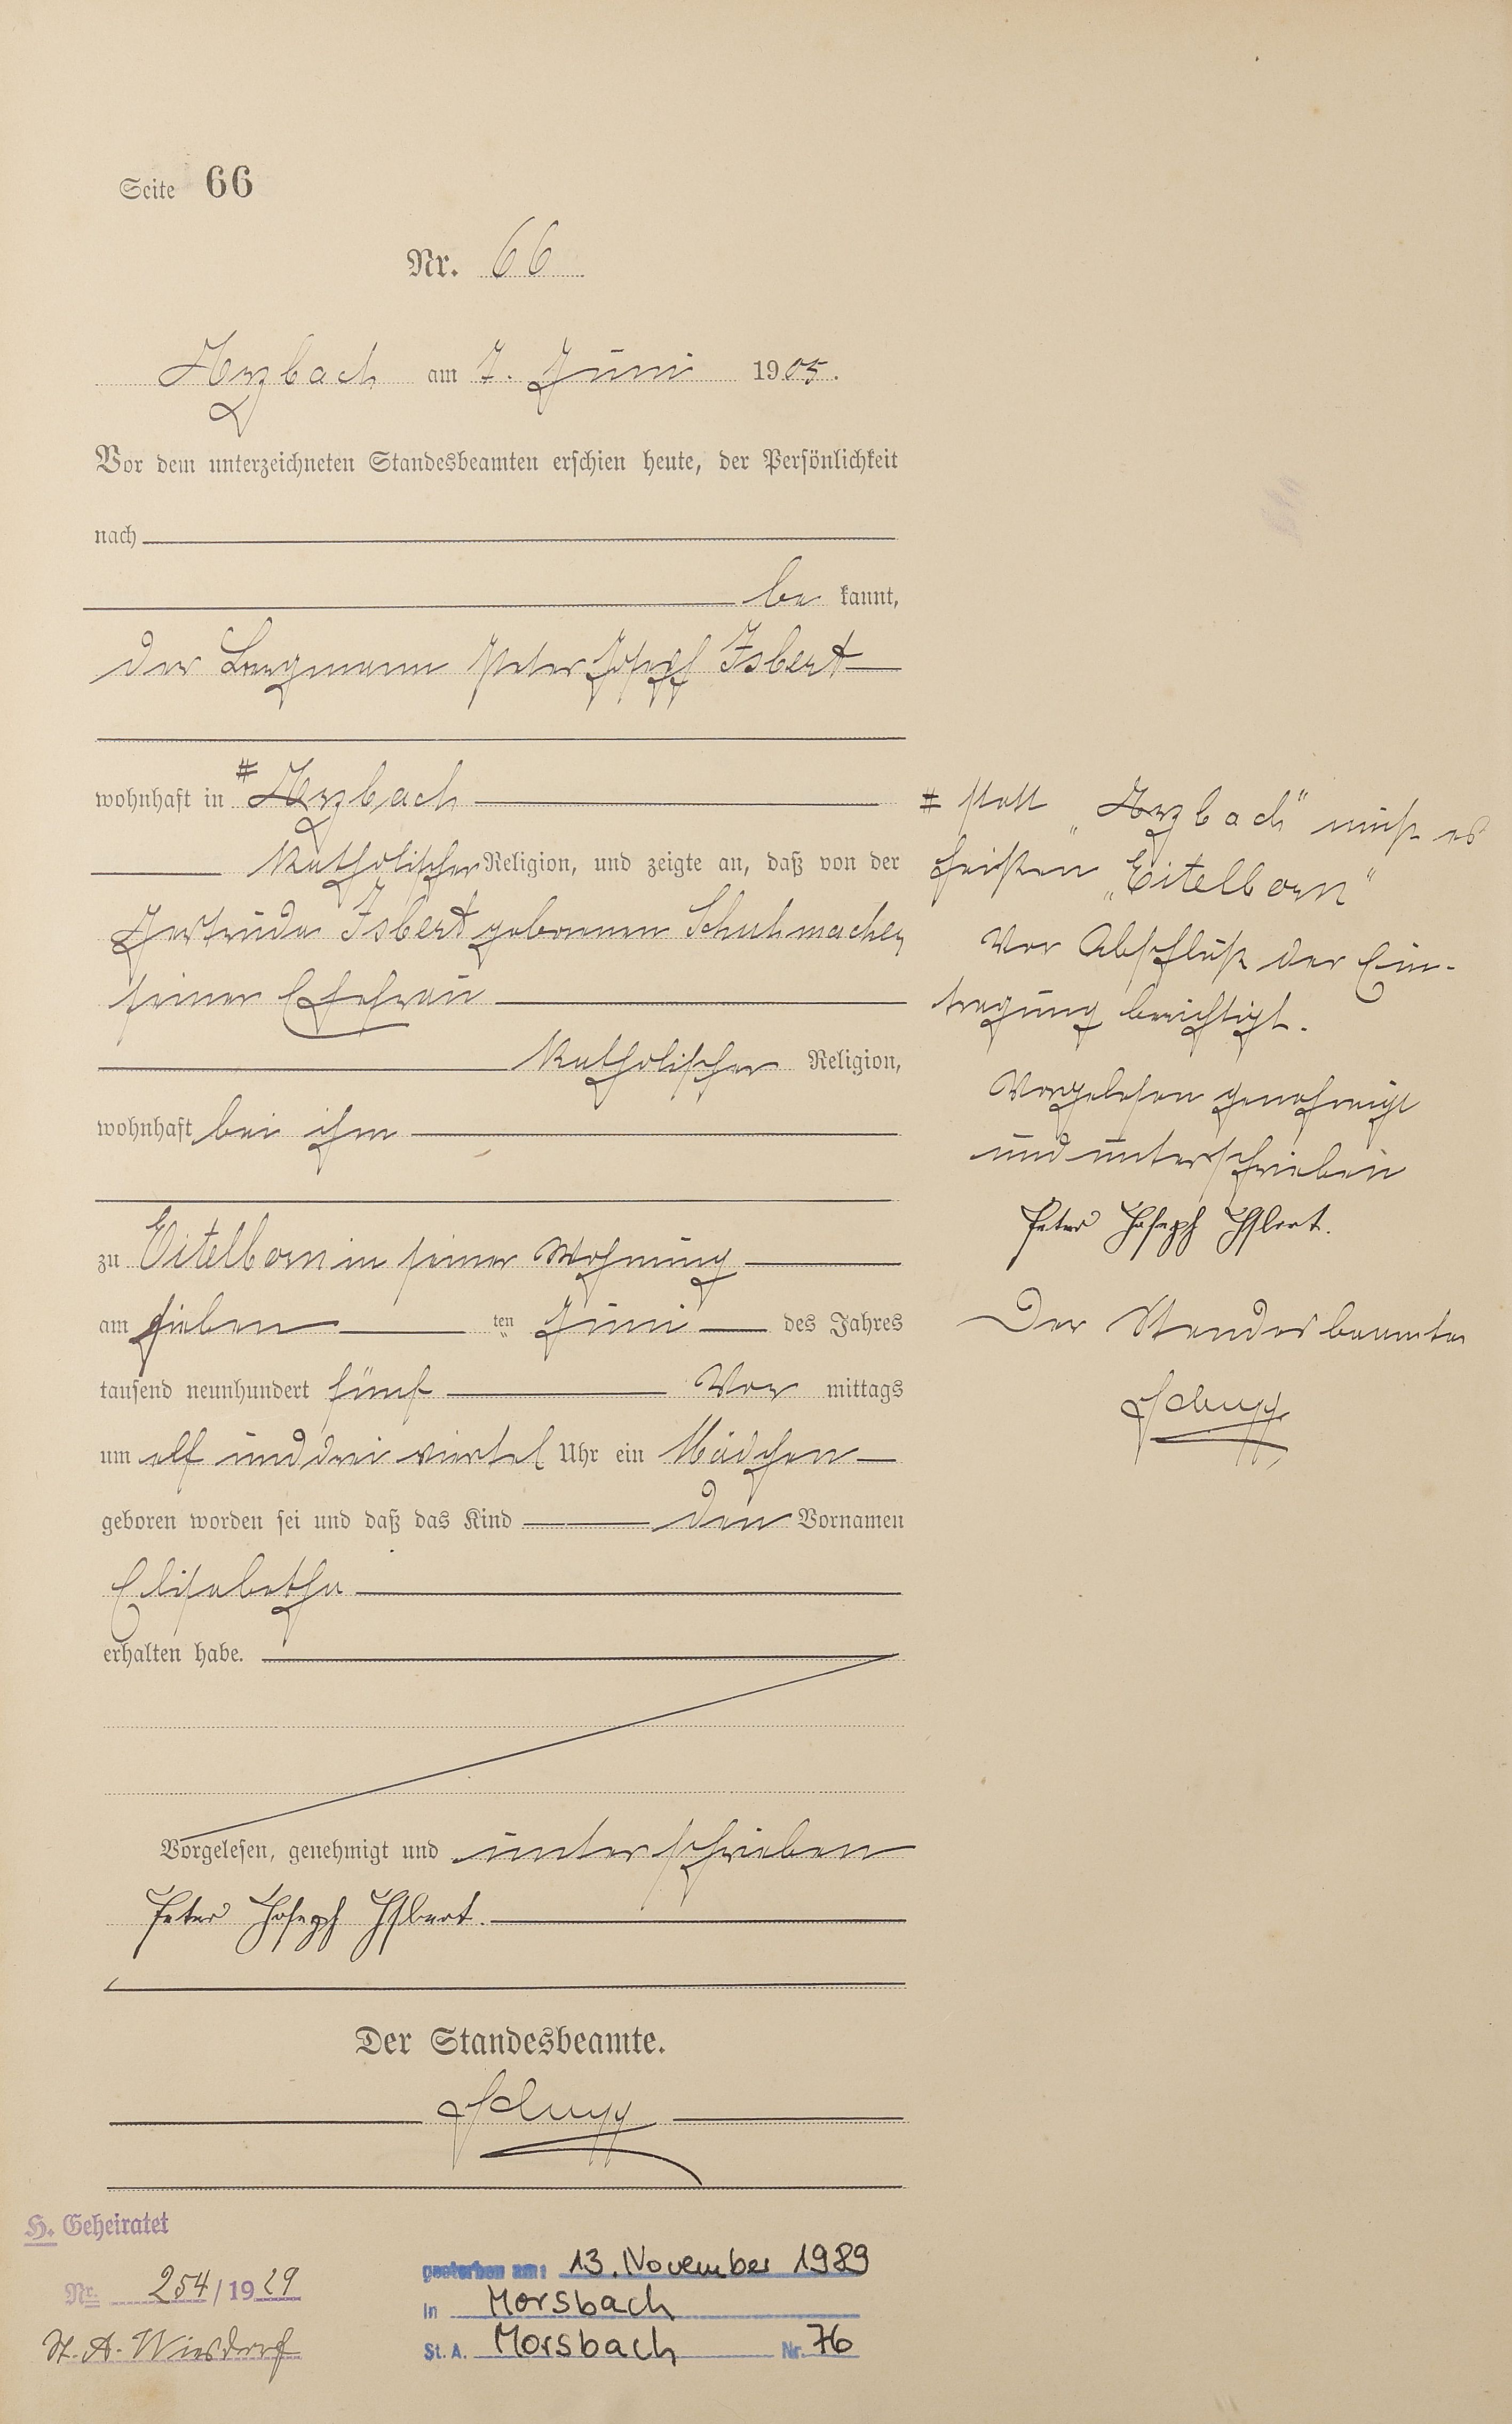 Seite 66
Nr. 66
Arzbach am 7. Juni 1905.
Vor dem unterzeichneten Standesbeamten erschien heute, der Persönlichkeit
nach
be kannt,
der Bergmann Peter Josef Isbert
wohnhaft in # Arzbach
katholischer Religion, und zeigte an, daß von der
Gertruda Isbert geborenen Schuhmacher,
seiner Ehefrau
katholischer Religion,
wohnhaft bei ihm
zu Eitelborn in seiner Wohnung
am sieben ten Juni des Jahres
tausend neunhundert fünf Vor mittags
um elf und drei viertel Uhr ein Mädchen
geboren worden sei und daß das Kind den Vornamen
Elisabetha
erhalten habe.
Vorgelesen, genehmigt und unterschrieben
Peter Joseph Isbert.
Der Standesbeamte.
Schupp
# statt „Arzbach" muß es
heißen „Eitelborn"
Vor Abschluß der Ein-
tragung berichtigt.
Vorgelesen genehmigt
und unterschrieben
Peter Joseph Isbert.
Der Standesbeamte
Schupp
H. Geheiratet
Nr. 254/1929
St. A. Wiesdorf
gestorben am: 13. November 1989
in Morsbach
St. A. Morsbach Nr. 76